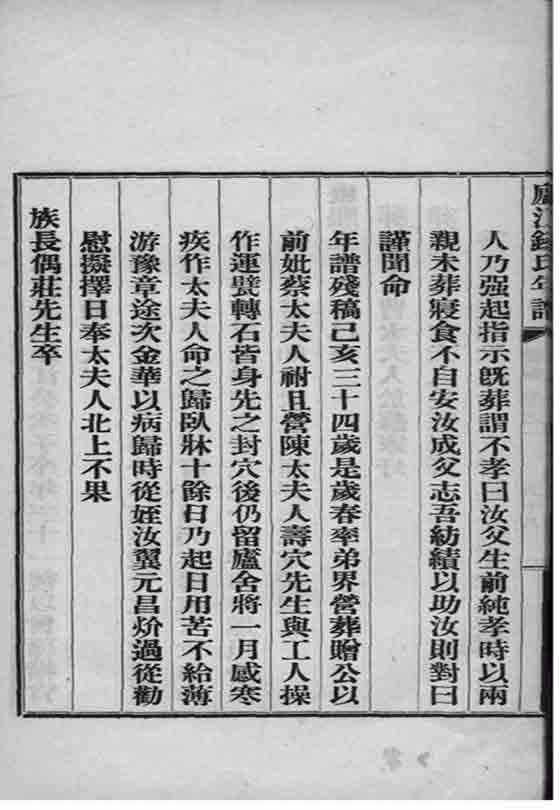 廬江錢氏年譜
人乃强起指示旣葬謂不孝曰汝父生前純孝時以兩
親未葬寢食不自安汝成父志吾紡績以助汝則對曰
謹聞命
年譜殘稿己亥三十四歲是歲春率弟界營葬贈公以
前妣蔡太夫人祔且營陳太夫人壽穴先生與工人操
作運甓轉石皆身先之封穴後仍留廬舍將一月感寒
疾作太夫人命之歸臥牀十餘日乃起日用苦不給薄
游豫章途次金華以病歸時從姪汝翼元昌炌過從勸
慰擬擇日奉太夫人北上不果
族長偶莊先生卒